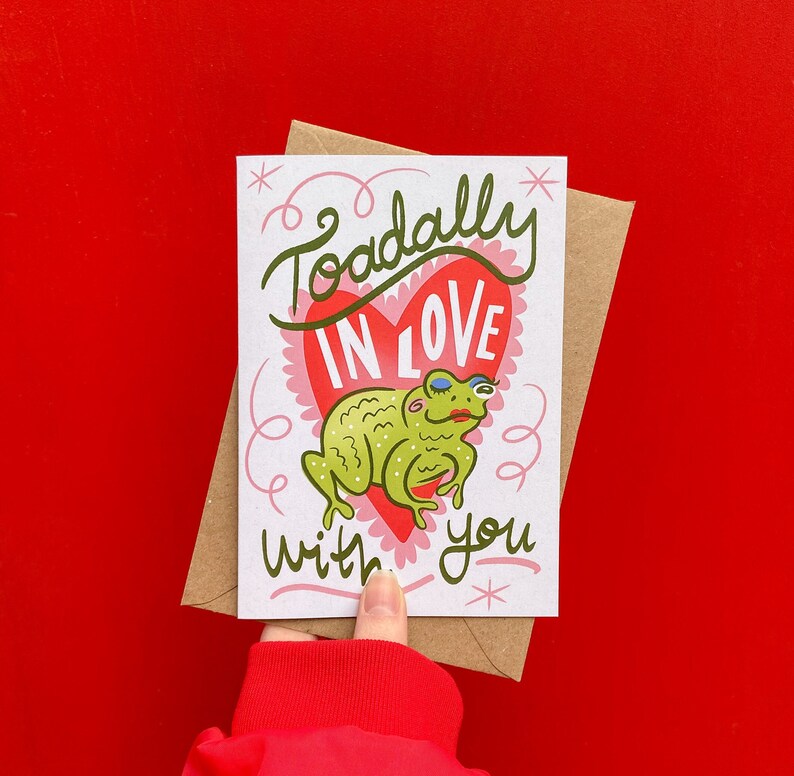 Toadally
IN LOVE
with you